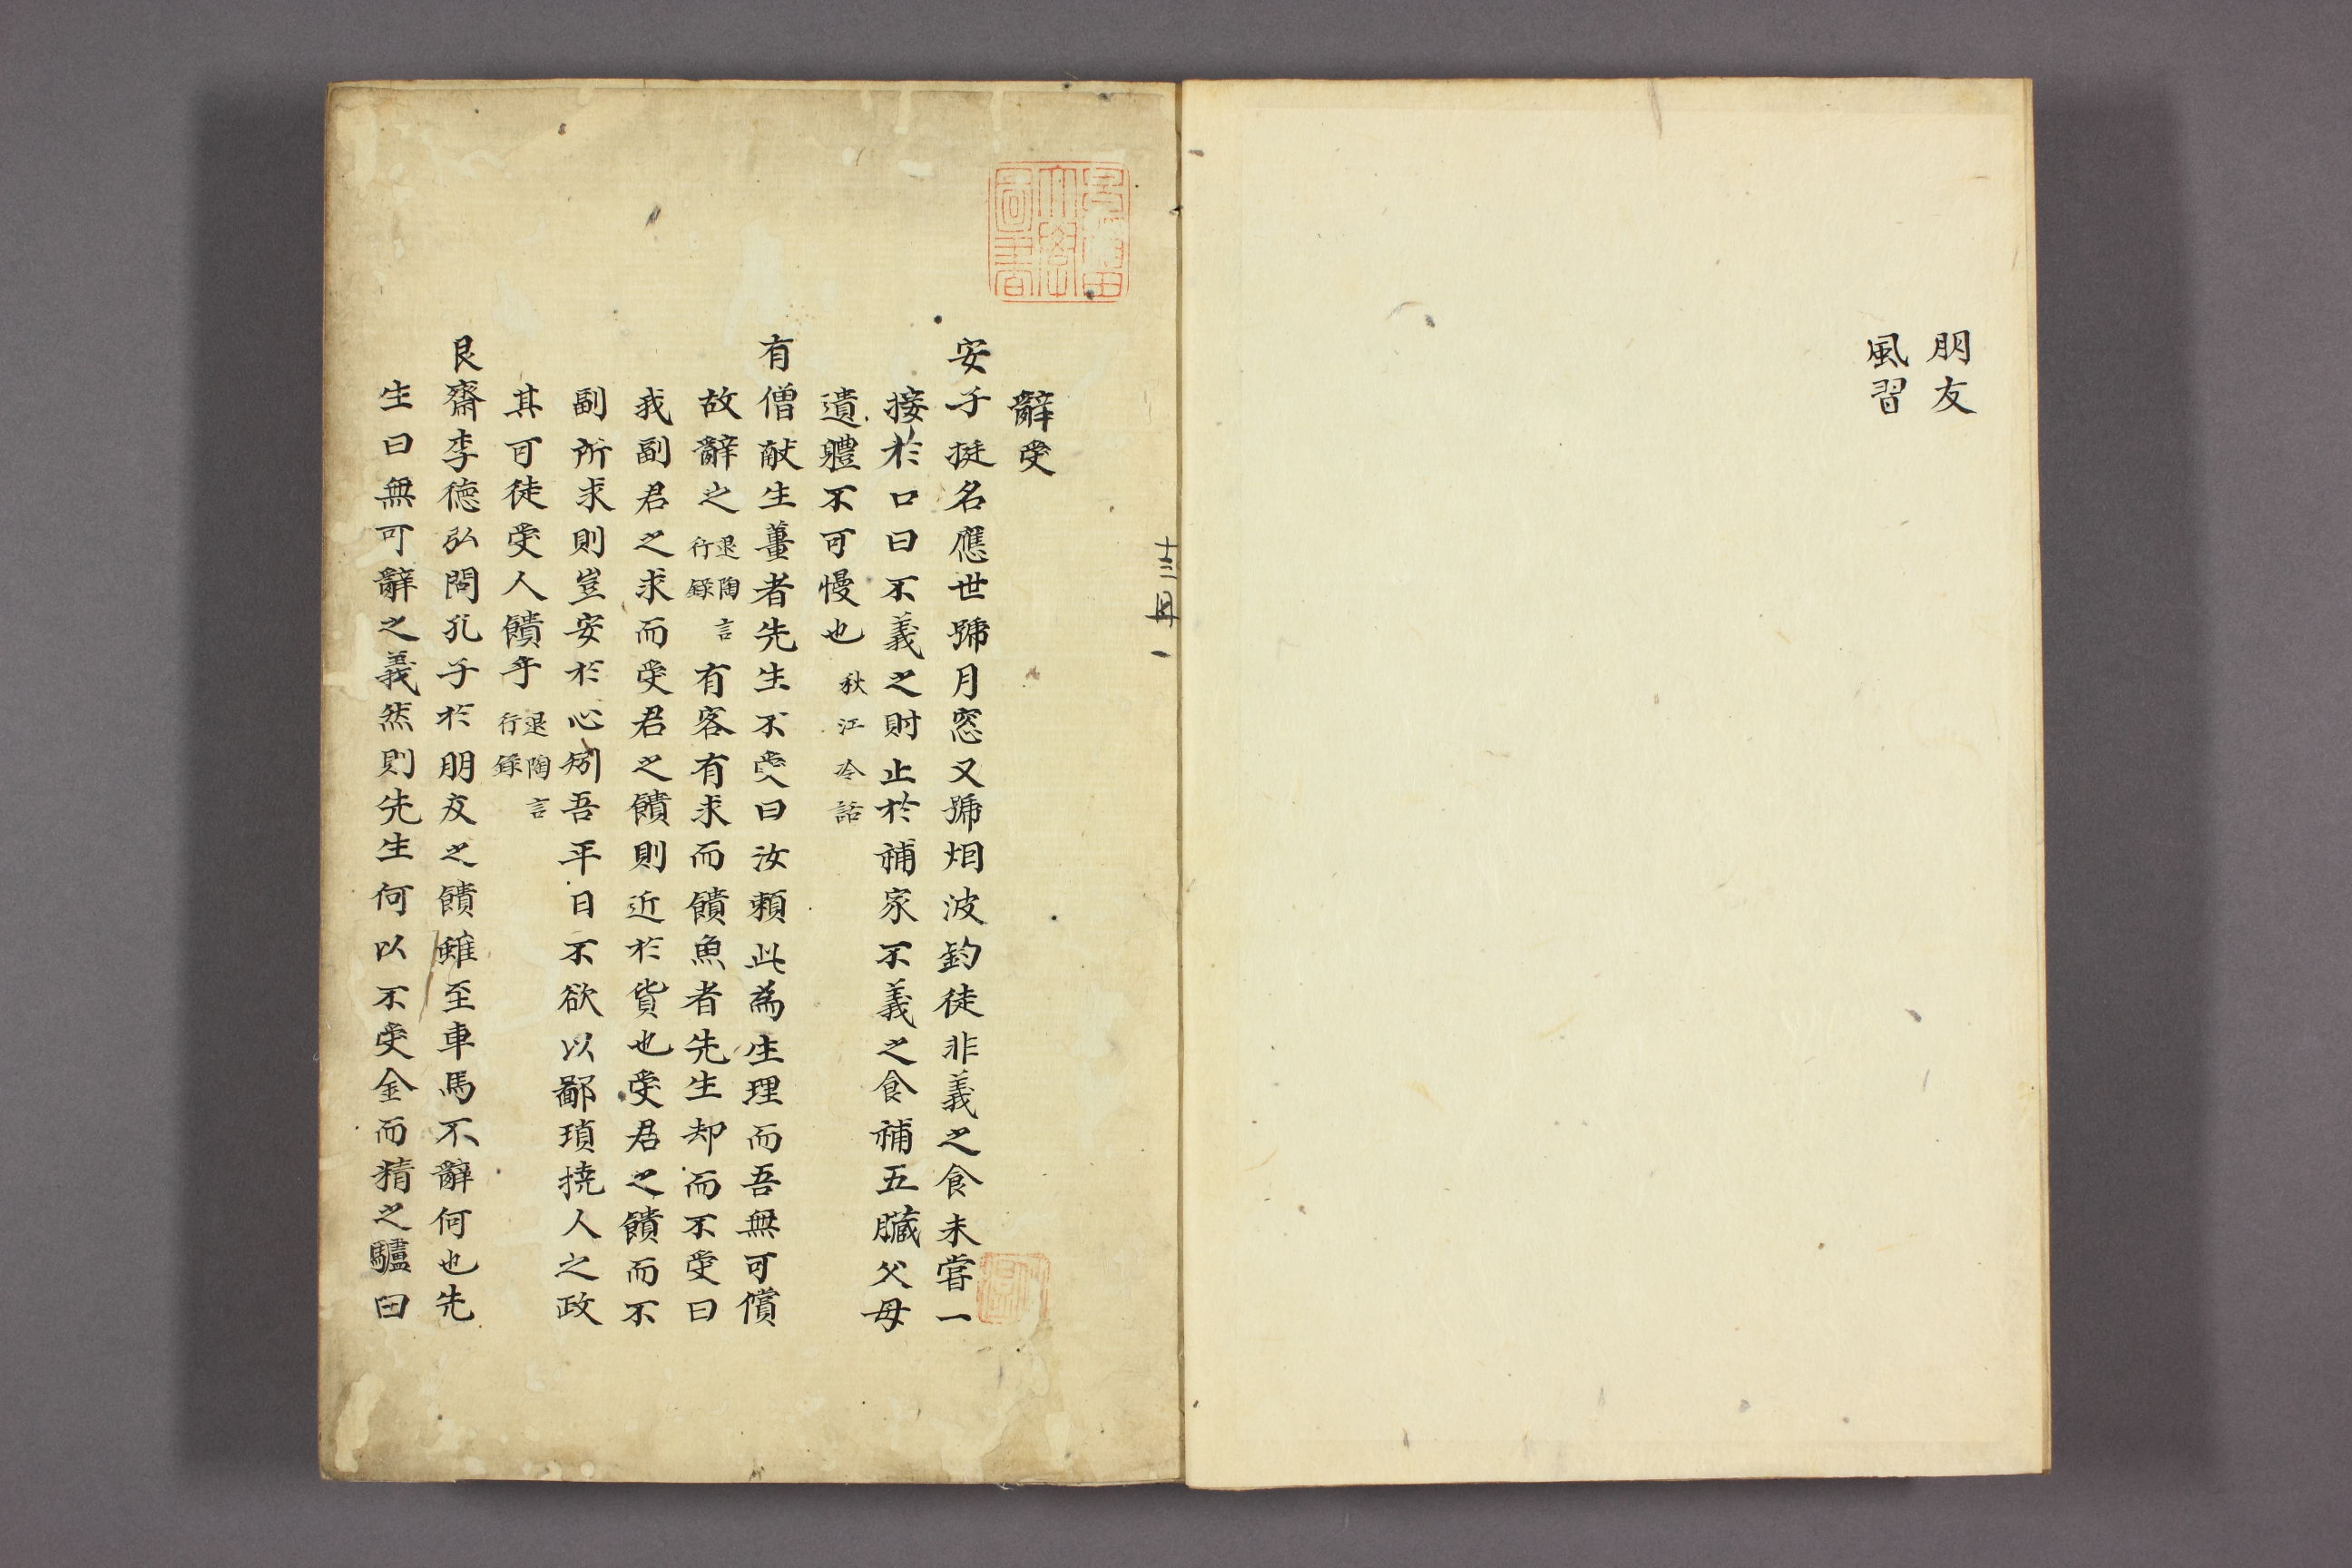 朋友
風習
十三冊 一
辭受
安子挺名應世號月窓又號烟波釣徒非義之食未嘗一
接於口曰不義之財止於補家不義之食補五臟父母
遺軆不可慢也 秋江冷話
有僧献生薑者先生不受曰汝頼此為生理而吾無可償
故辭之 退陶言行錄 有客有求而饋魚者先生却而不受曰
我副君之求而受君之饋則近於貨也受君之饋而不
副所求則豈安於心矧吾平日不欲以鄙瑣撓人之政
其可徒受人饋乎 退陶言行錄
艮齋李德弘問孔子於朋友之饋雖至車馬不辭何也先
生曰無可辭之義然則先生何以不受金而精之驢曰
早稲田大學圖書